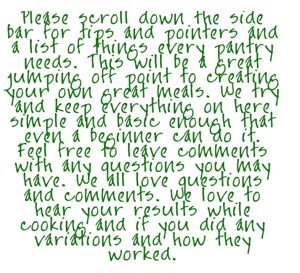 Please scroll down the side
bar for tips and pointers and
a list of things every pantry
needs. This will be a great
jumping off point to creating
your own great meals. We try
and keep everything on here
simple and basic enough that
even a beginner can do it.
Feel free to leave comments
with any questions you may
have. We all love questions
and comments. We love to
hear your results while
cooking and if you did any
variations and how they
worked.